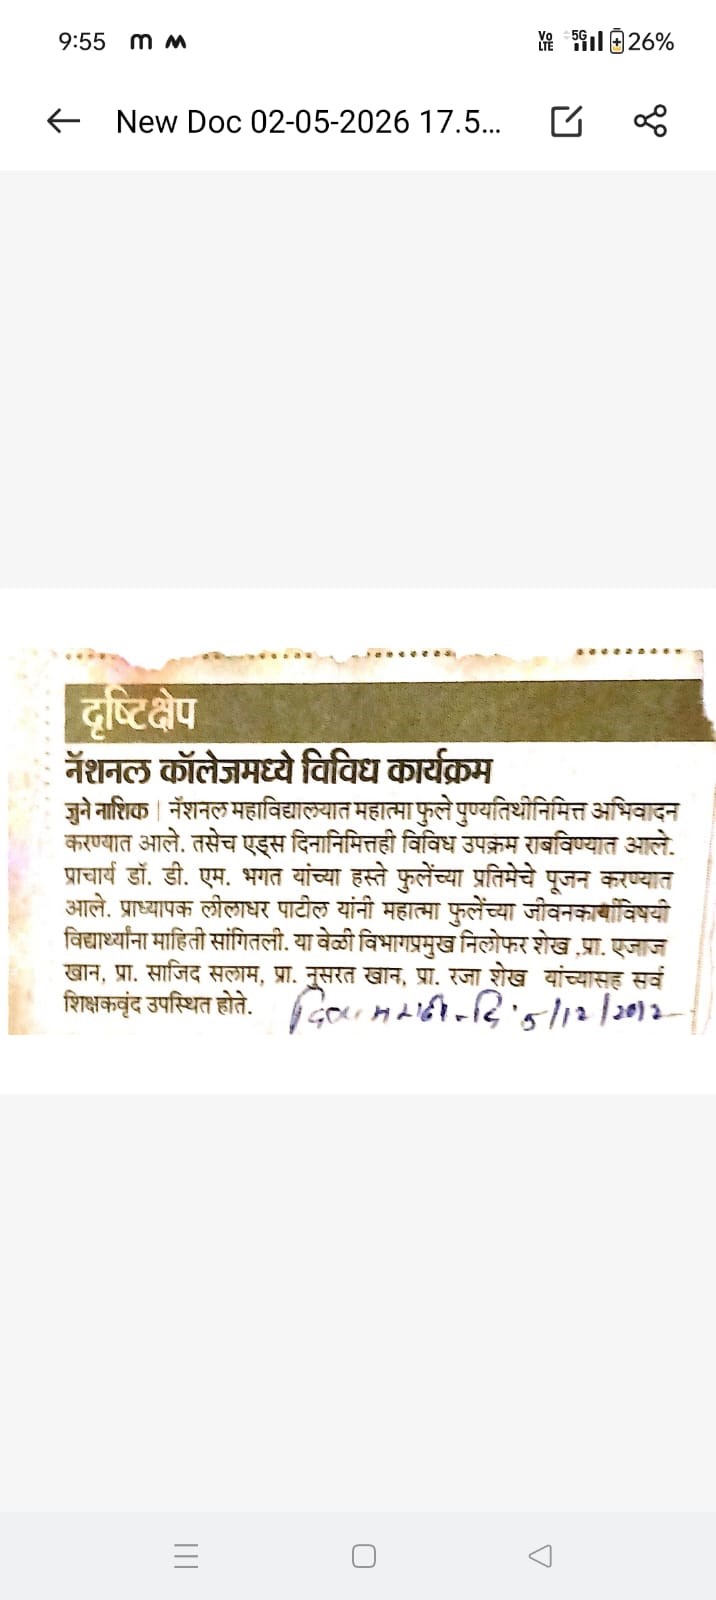 9:55
Vo LTE 5G 26%
New Doc 02-05-2026 17.5...
दृष्टिक्षेप
नॅशनल कॉलेजमध्ये विविध कार्यक्रम
जुने नाशिक | नॅशनल महाविद्यालयात महात्मा फुले पुण्यतिथीनिमित्त अभिवादन
करण्यात आले. तसेच एड्स दिनानिमित्तही विविध उपक्रम राबविण्यात आले.
प्राचार्य डॉ. डी. एम. भगत यांच्या हस्ते फुलेंच्या प्रतिमेचे पूजन करण्यात
आले. प्राध्यापक लीलाधर पाटील यांनी महात्मा फुलेंच्या जीवनकार्याविषयी
विद्यार्थ्यांना माहिती सांगितली. या वेळी विभागप्रमुख निलोफर शेख ,प्रा. एजाज
खान, प्रा. साजिद सलाम, प्रा. नुसरत खान, प्रा. रजा शेख यांच्यासह सर्व
शिक्षकवृंद उपस्थित होते.
दि. 5/12/2012